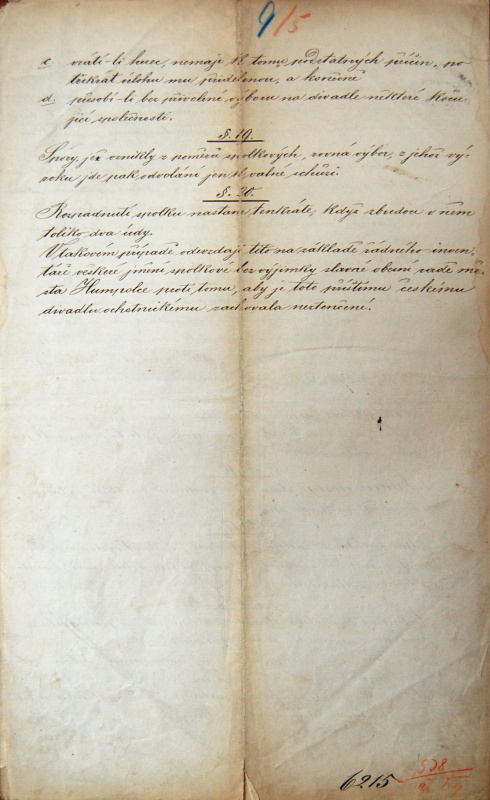 9/5
c. vrátí-li herec, nemaje k tomu podstatných příčin, po
třikrát úlohu mu přidělenou, a konečně
d. působí-li bez přivolení výboru na divadle některé koču-
jící společnosti.
§. 19.
Spory, jež vznikly z poměrů spolkových, rovná výbor, z jehož vý-
roku jde pak odvolání jen k valné schůzi.
§. 20.
Rozpadnutí spolku nastane tenkráte, když zbudou v něm
toliko dva údy.
V takovém případě odevzdají tito na základě řádného inven-
táře veškeré jmění spolkové bez výjimky slavné obecní radě mě-
sta Humpolce proti tomu, aby je toto příštímu českému
divadlu ochotnickému zachovala neztenčené.
6215